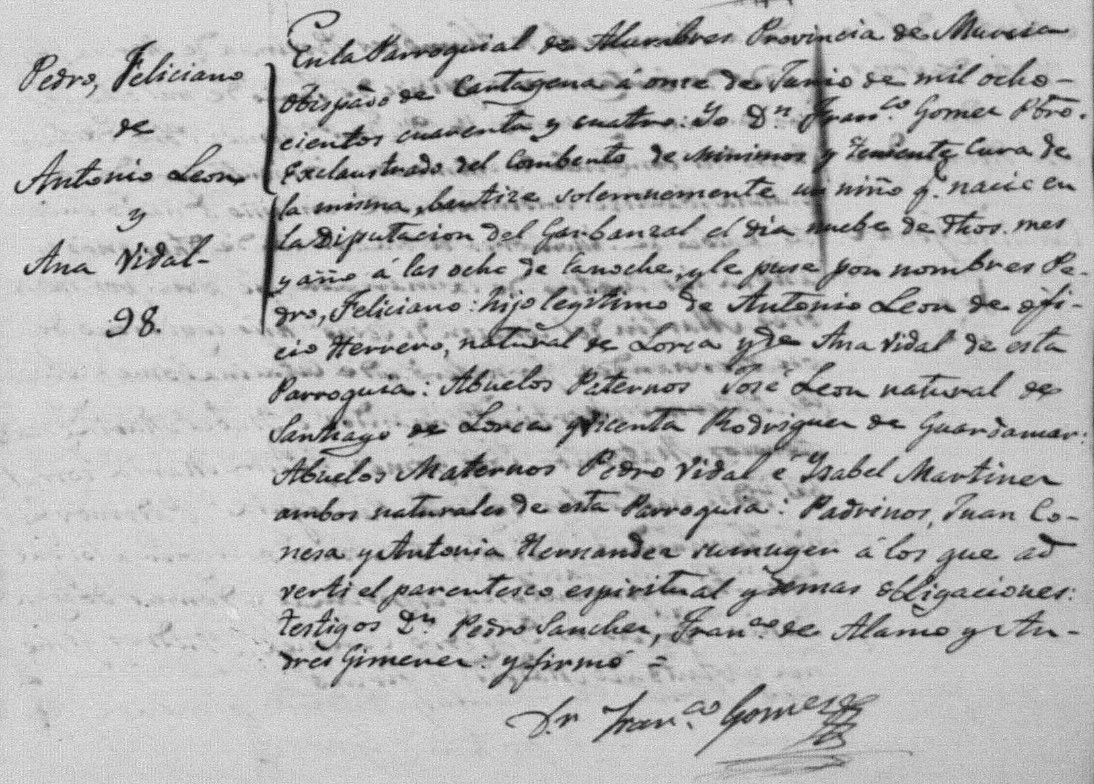 Pedro, Feliciano
de
Antonio Leon,
y
Ana Vidal-
98.
En la Parroquial de Alumbres Provincia de Murcia
Obispado de Cartagena á once de Junio de mil ocho-
cientos cuarenta y cuatro: Yo Dn. Franco. Gomez Pbro.
Exclaustrado del Combento de Minimos y Teniente Cura de
la misma, bautize solemnemente un niño q. nacic en
la Diputacion del Garbanzal el dia nuebe de dhos. mes
y año á las ocho de la noche, y le puse por nombres Pe-
dro, Feliciano: hijo legitimo de Antonio Leon de ofi-
cio Herrero, natural de Lorca y de Ana Vidal de esta
Parroquia: Abuelos Paternos José Leon natural de
Santiago de Lorca y Vicenta Rodriguez de Guardamar:
Abuelos Maternos Pedro Vidal e Ysabel Martinez
ambos naturales de esta Parroquia: Padrinos, Juan Co-
nesa y Antonia Hernandez su muger á los que ad
verti el parentesco espiritual y demas obligaciones:
testigos Dn. Pedro Sanchez, Franco. de Alamo y An-
dres Gimenez: y firmó =
Dn. Franco. Gomez